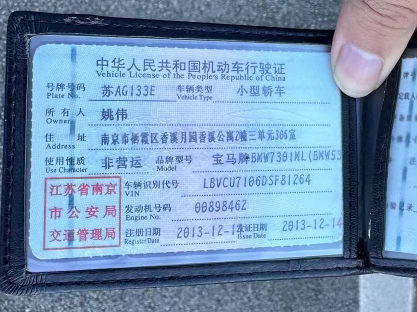 中华人民共和国机动车行驶证
Vehicle License of the People's Republic of China
号牌号码 苏AG133E 车辆类型 小型轿车
Plate No. Vehicle Type
所有人 姚伟
Owner
住址 南京市栖霞区香溪月园香溪公寓2幢三单元306室
Address
使用性质 非营运 品牌型号 宝马牌BMW7301ML(BMW53
Use Character Model
江苏省南京
市公安局
交通管理局
车辆识别代号 LBVCU7106DSF81264
VIN
发动机号码 00898462
Engine No.
注册日期 2013-12-1 发证日期 2013-12-14
Register Date Issue Date